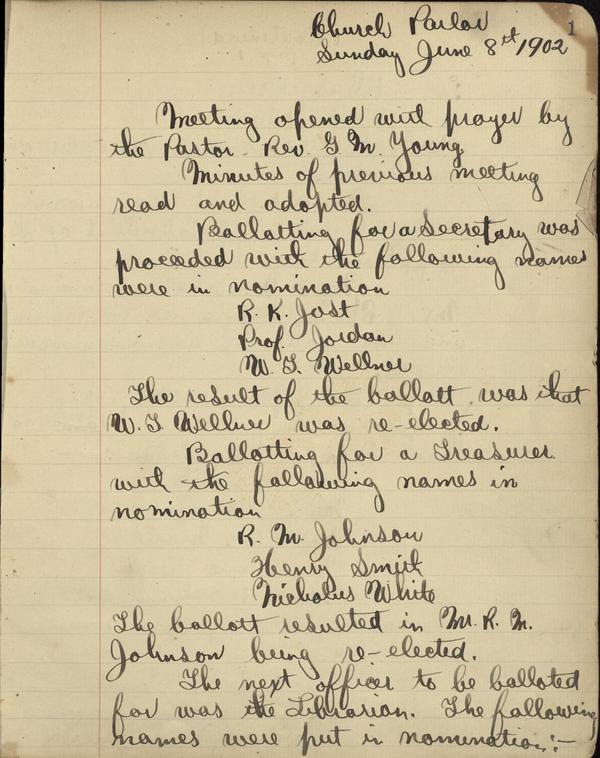 1
Church Parlor
Sunday June 8th 1902
Meeting opened with prayer by
the Pastor. Rev. G. M. Young.
Minutes of previous meeting
read and adopted.
Ballotting for a Secretary was
proceeded with the following names
were in nomination
R. K. Jost
Prof. Jordan
W. T. Wellner
The result of the ballott was that
W. T. Wellner was re-elected.
Ballotting for a Treasurer
with the following names in
nomination
R. M. Johnson
Henry Smith
Nicholus White
The ballott resulted in Mr. R. M.
Johnson being re-elected.
The next officer to be balloted
for was the Librarian. The following
names were put in nomination:-